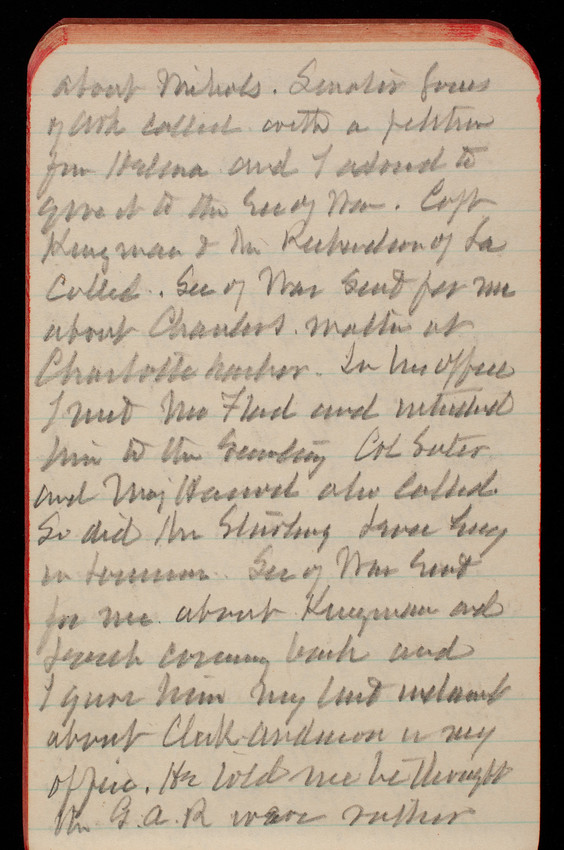 about Nichols. Senator Jones
of Ark called with a petition
for Helena and I advised to
give it to the Sec of War. Capt
Kingman & Mr Richardson of La
called. Sec of War sent for me
about Chambers matter at
Charlotte harbor. In his office
I met Mr Flad and introduced
him to the Secretary Col Suter
and Maj Hanvod also called.
So did Mr Sterling
in Sec of War sent
for me about Kingman and
coming back and
I gave him my
about Clerk Anderson in my
office. He told me he thought
the G.A.R were rather